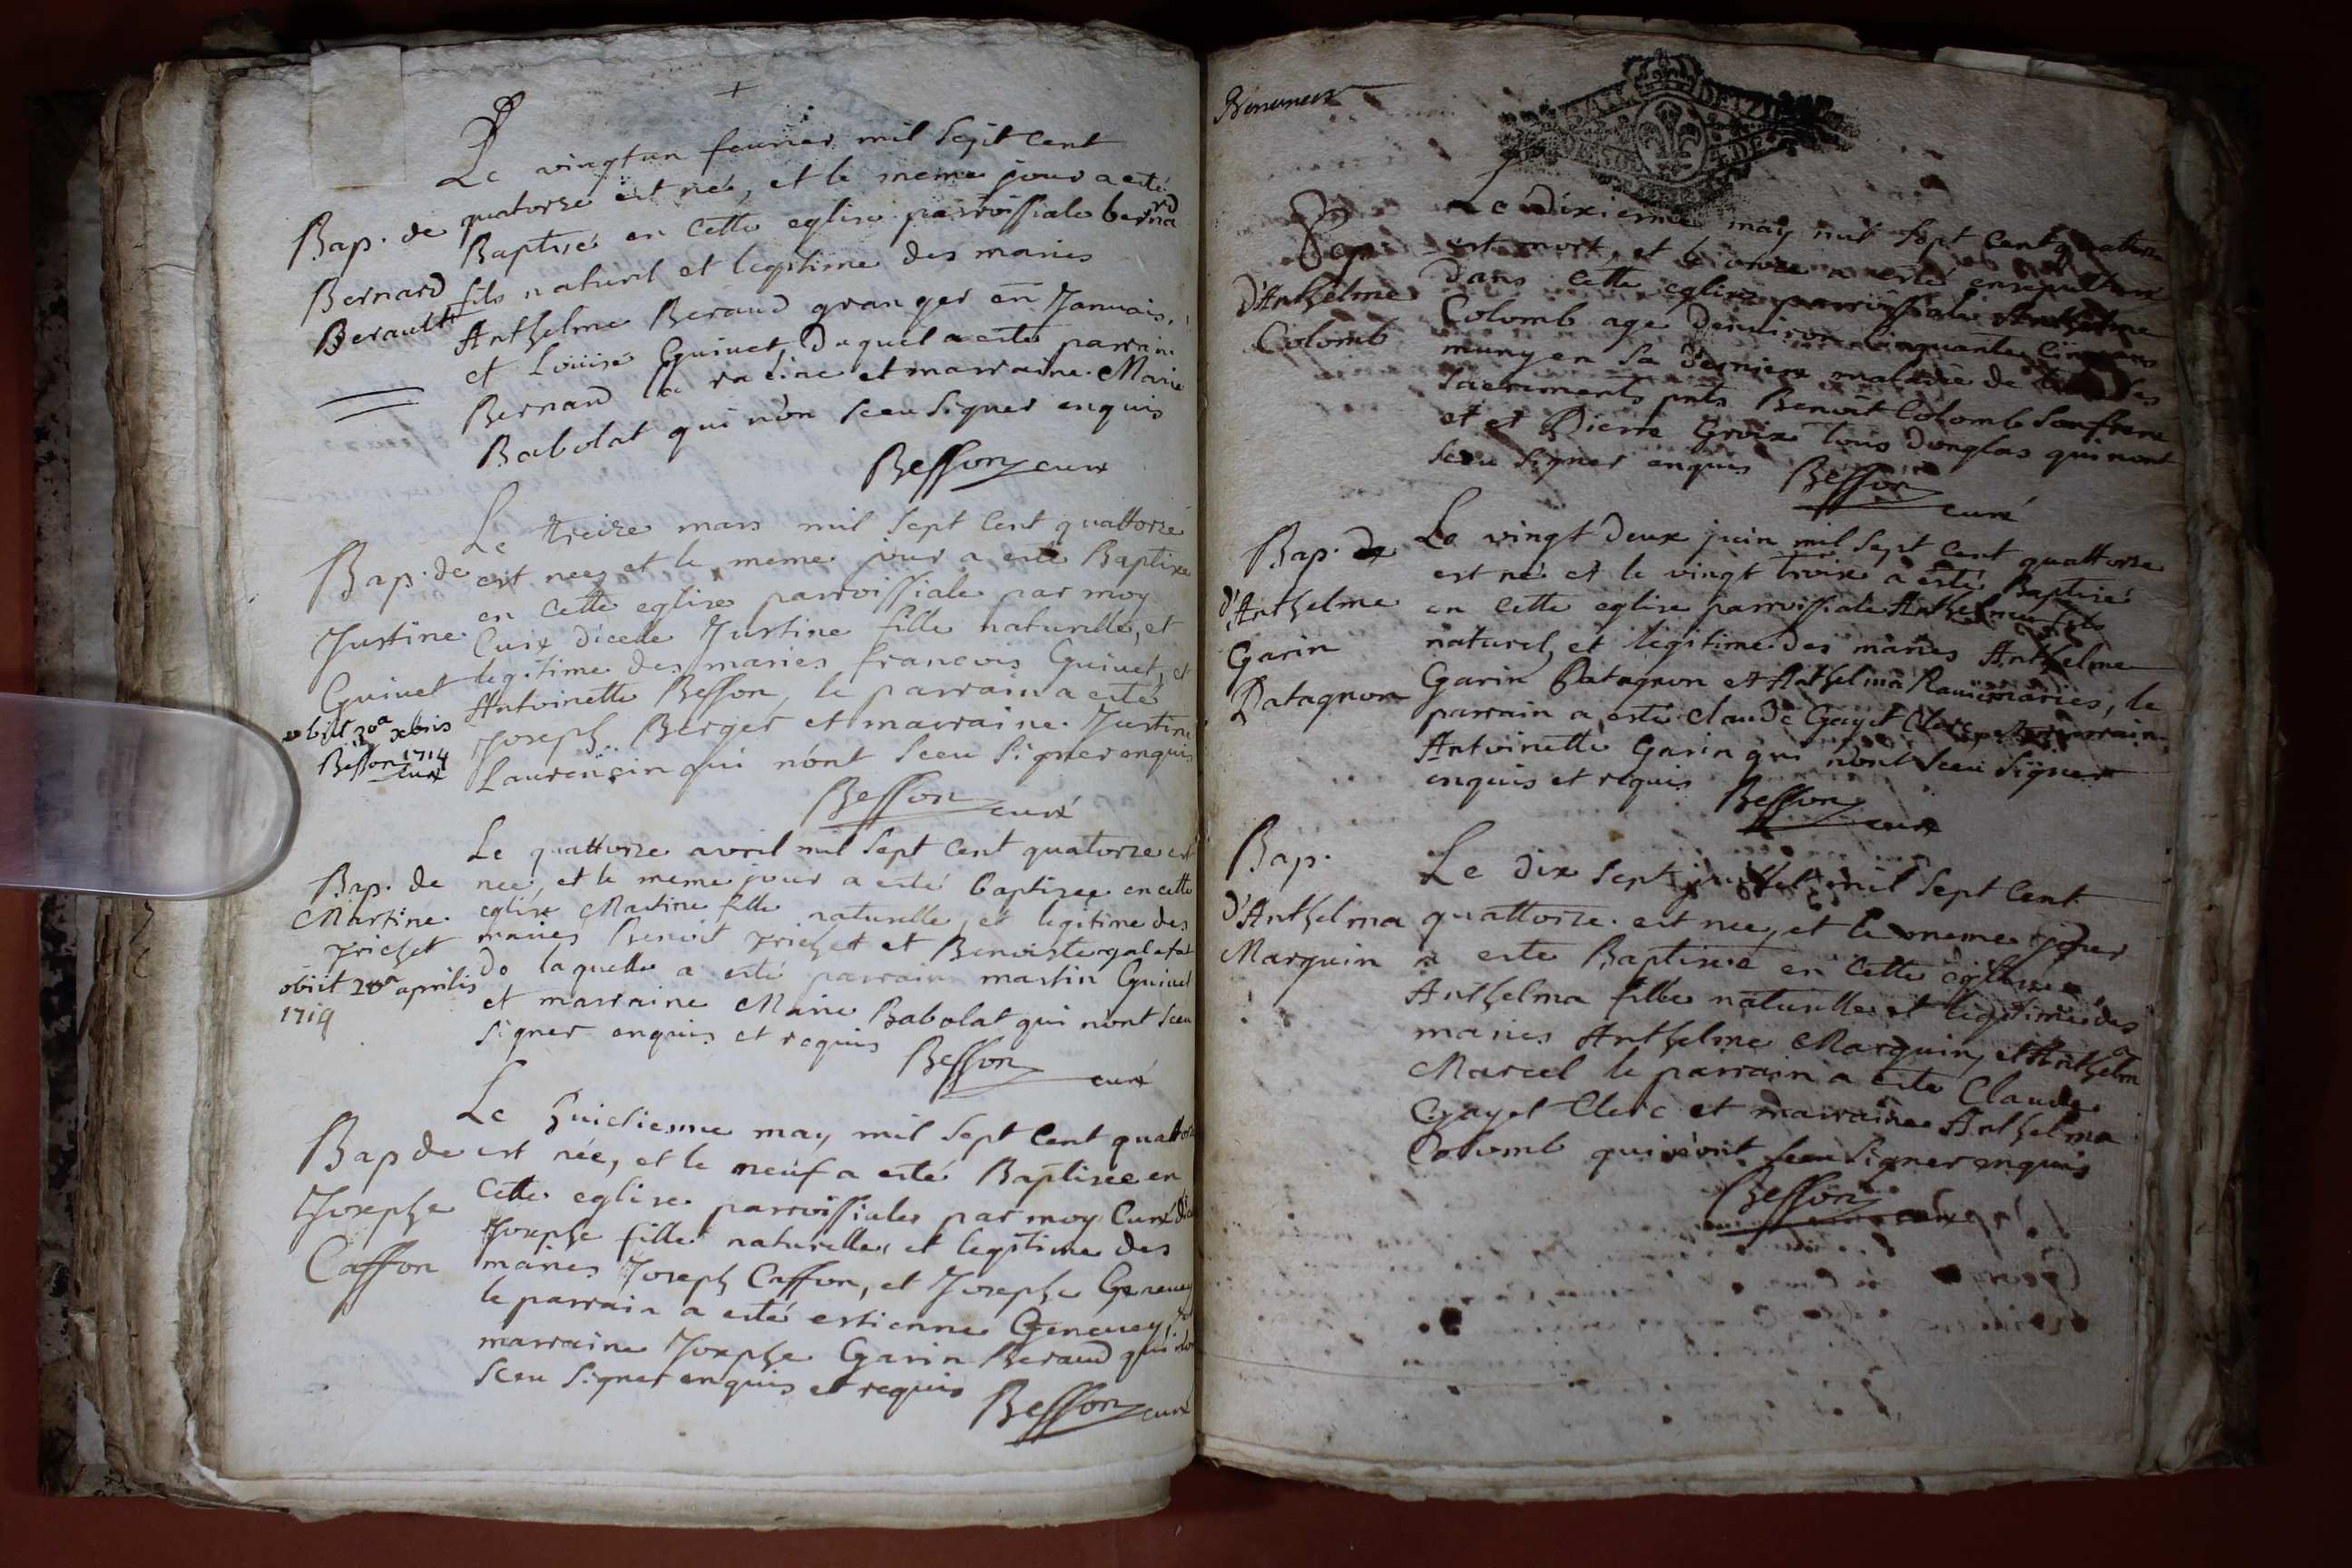 Le vingt un feurier mil sept cent
Bap. de quatorze est né, et le meme jour a esté
Baptisé en cette eglise parroissiale bernard
Bernard fils naturel et legitime des maries
Berault Anthelme Beraud granger en Januais,
et Louise Guinet, duquel a esté parrain
Bernard la racine et marraine Marie
Babolat qui n'on sceu signer enquis
Besson curé
Le treize mars mil sept cent quattorze
Bap. de est nee, et le meme jour a esté Baptisee
en cette eglise parroissiale par moy
Justine Curé dicelle Justine fille naturelle, et
Guinet legitime des maries francois Guinet, et
Antoinette Besson, le parrain a esté
obiit 30a xbris
Joseph Berger et marraine Justine
Besson 1714
curé
Laurensin qui n'ont sceu signer enquis
Besson curé
Le quattorze avril mil sept cent quatorze est
Bap. de nee, et le meme jour a esté baptisee en cette
Martine eglise Martine fille naturelle, et legitime des
Trichet maries Benoit Trichet et Benoiste galafat
obiit 20a aprilis de laquelle a esté parrain martin Guinet
1714 et marraine Marie Babolat qui n'ont sceu
signer enquis et requis
Besson curé
Le huictiesme may mil sept cent quattorze
Bap de est née, et le neuf a esté Baptisée en
cette eglise parroissiale par moy Curé
Josephe Josephe fille naturelle et legitime des
Caffon maries Joseph Caffon, et Josephe Geneuey
le parrain a esté estienne Geneuey, et
marraine Josephe Garin Beraud qui
sceu signer enquis et requis
Besson curé
Le dixiesme may mil sept cent quattorze
Sep. est mort, et le onze a esté ensepulturé
d'Anthelme dans cette eglise parroissiale Anthelme
Colomb Colomb age denuiron cinquante cinq ans
muny en sa derniere maladie de tous les
sacrements pnts Benoit Colomb son frere
et et Pierre Groix tous donglas qui nont
sceu signer enquis
Besson curé
Le vingt deux juin mil sept cent quattorze
Bap. de est né et le vingt trois a esté Baptisé
d'Anthelme en cette eglise parroissiale Anthelme fils
Garin naturel, et legitime des maries Anthelme
Patagnon Garin Patagnon et Anthelma maries, le
parrain a esté claude Gayet Clerc marraine
Antoinette Garin qui n'ont sceu signer
enquis et requis
Besson curé
Bap. Le dix sept juillet mil sept cent
d'Anthelma quattorze est nee, et le meme jour
Marquin a este Baptisee en cette eglise
Anthelma fille naturelle et legitime des
maries Anthelme Marquin, et Anthelma
Marcel le parrain a este Claude
Gayet Clerc et marraine Anthelma
Colomb qui n'ont sceu signer enquis
Besson curé